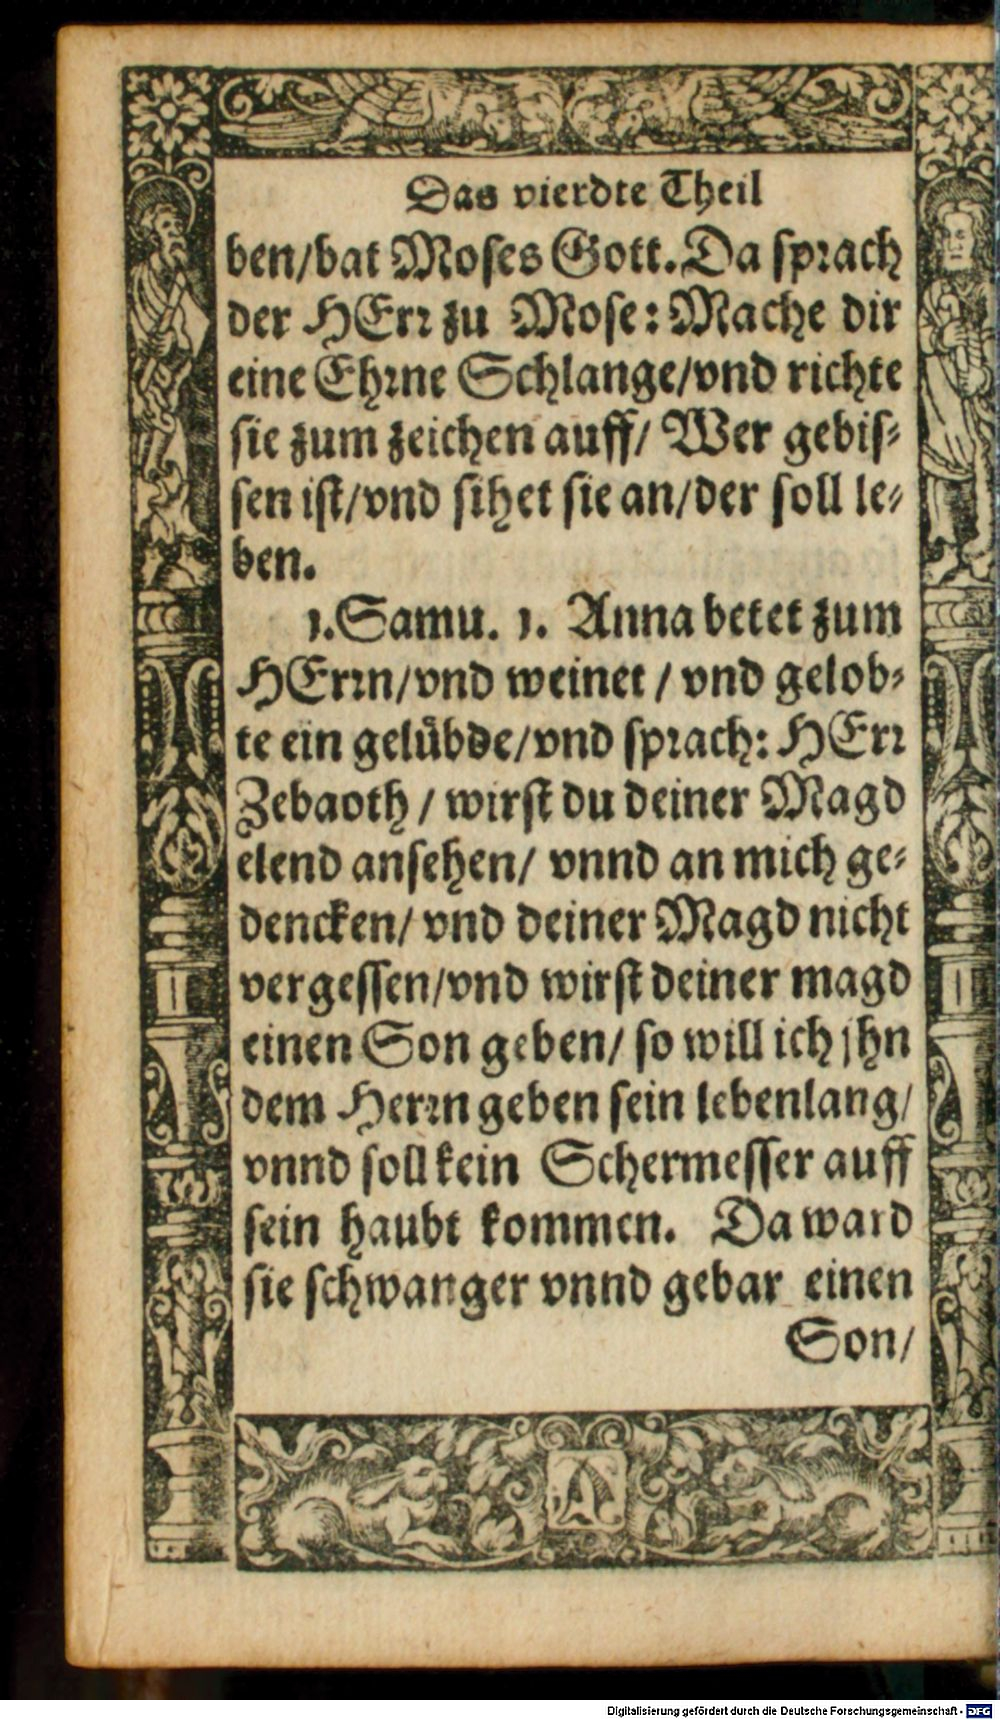 Das vierdte Theil
ben/bat Moses Gott. Da sprach
der HErr zu Mose: Mache dir
eine Ehrne Schlange/vnd richte
sie zum zeichen auff/ Wer gebis-
sen ist/vnd sihet sie an/der soll le-
ben.
1. Samu. 1. Anna betet zum
HErrn/vnd weinet / vnd gelob-
te ein gelübde/vnd sprach: HErr
Zebaoth / wirst du deiner Magd
elend ansehen/ vnnd an mich ge-
dencken/ vnd deiner Magd nicht
vergessen/vnd wirst deiner magd
einen Son geben/ so will ich jhn
dem Herrn geben sein lebenlang/
vnnd soll kein Schermesser auff
sein haubt kommen. Da ward
sie schwanger vnnd gebar einen
Son/
Digitalisierung gefördert durch die Deutsche Forschungsgemeinschaft - DFG